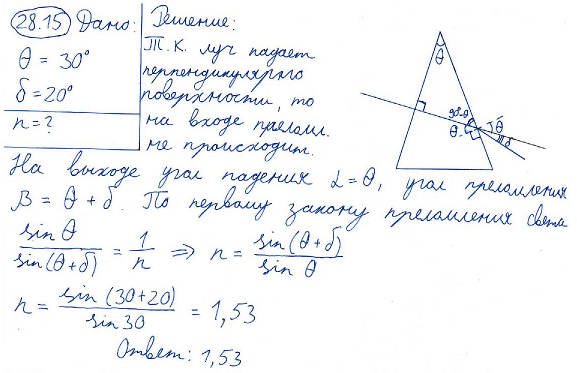 28.15 Дано: Решение:
Т.К. луч падает
θ = 30°
перпендикулярно
δ = 20°
поверхности, то
n = ?
на входе прелом.
не происходит.
θ
90-θ
θ
θ
δ
На выходе угол падения α = θ, угол преломления
β = θ + δ. По первому закону преломления света
sin θ / sin(θ+δ) = 1/n ⇒ n = sin(θ+δ) / sin θ
n = sin(30+20) / sin 30 = 1,53
Ответ: 1,53